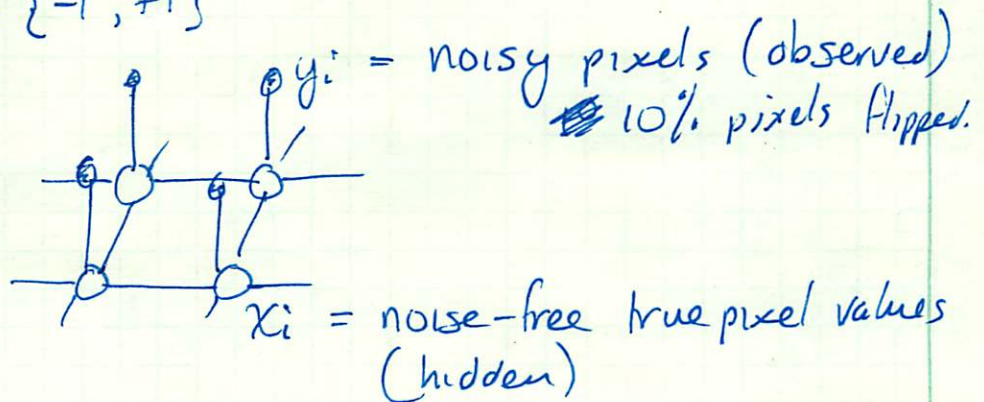 {-1, +1}
yi = noisy pixels (observed)
10% pixels flipped.
xi = noise-free true pixel values
(hidden)